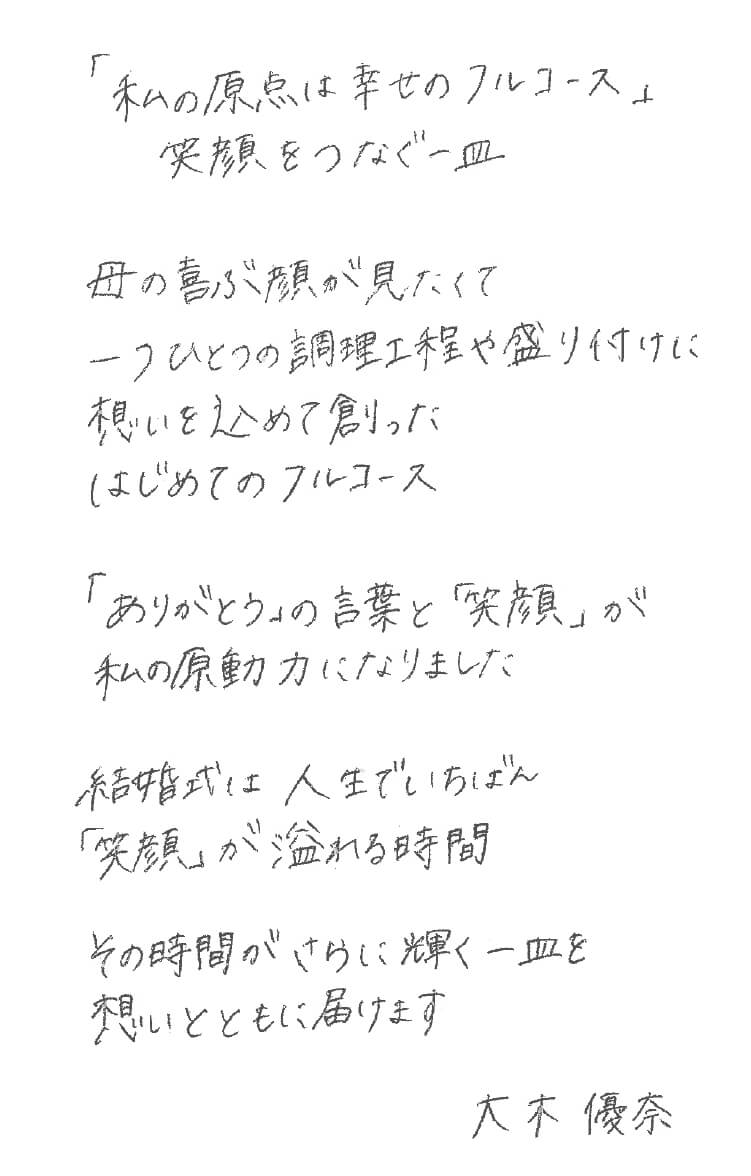 「私の原点は幸せのフルコース」
笑顔をつなぐ一皿
母の喜ぶ顔が見たくて
一つひとつの調理工程や盛り付けに
想いを込めて創った
はじめてのフルコース
「ありがとう」の言葉と「笑顔」が
私の原動力になりました
結婚式は 人生でいちばん
「笑顔」が溢れる時間
その時間がさらに輝く一皿を
想いとともに届けます
大木 優奈